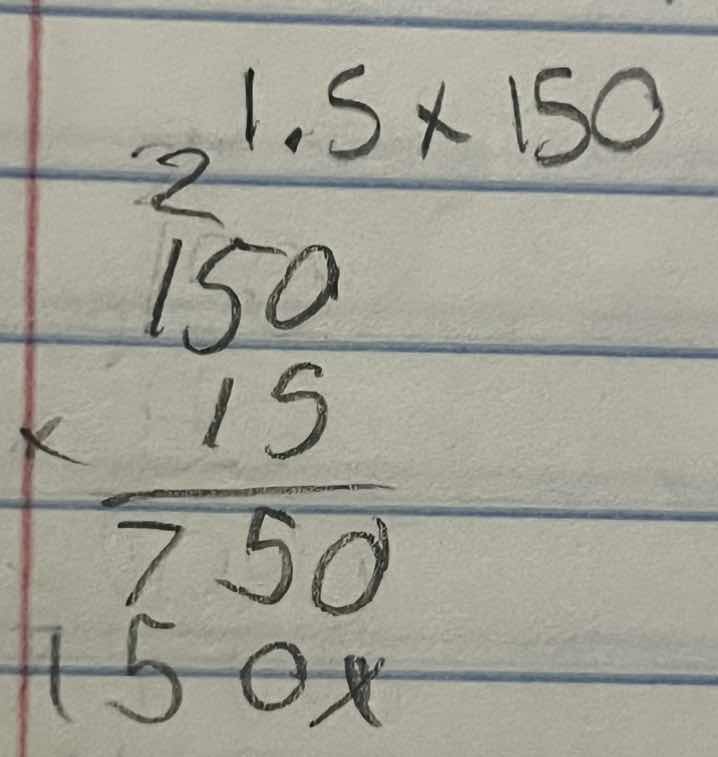 1.5 x 150
2
150
x 15
750
150x